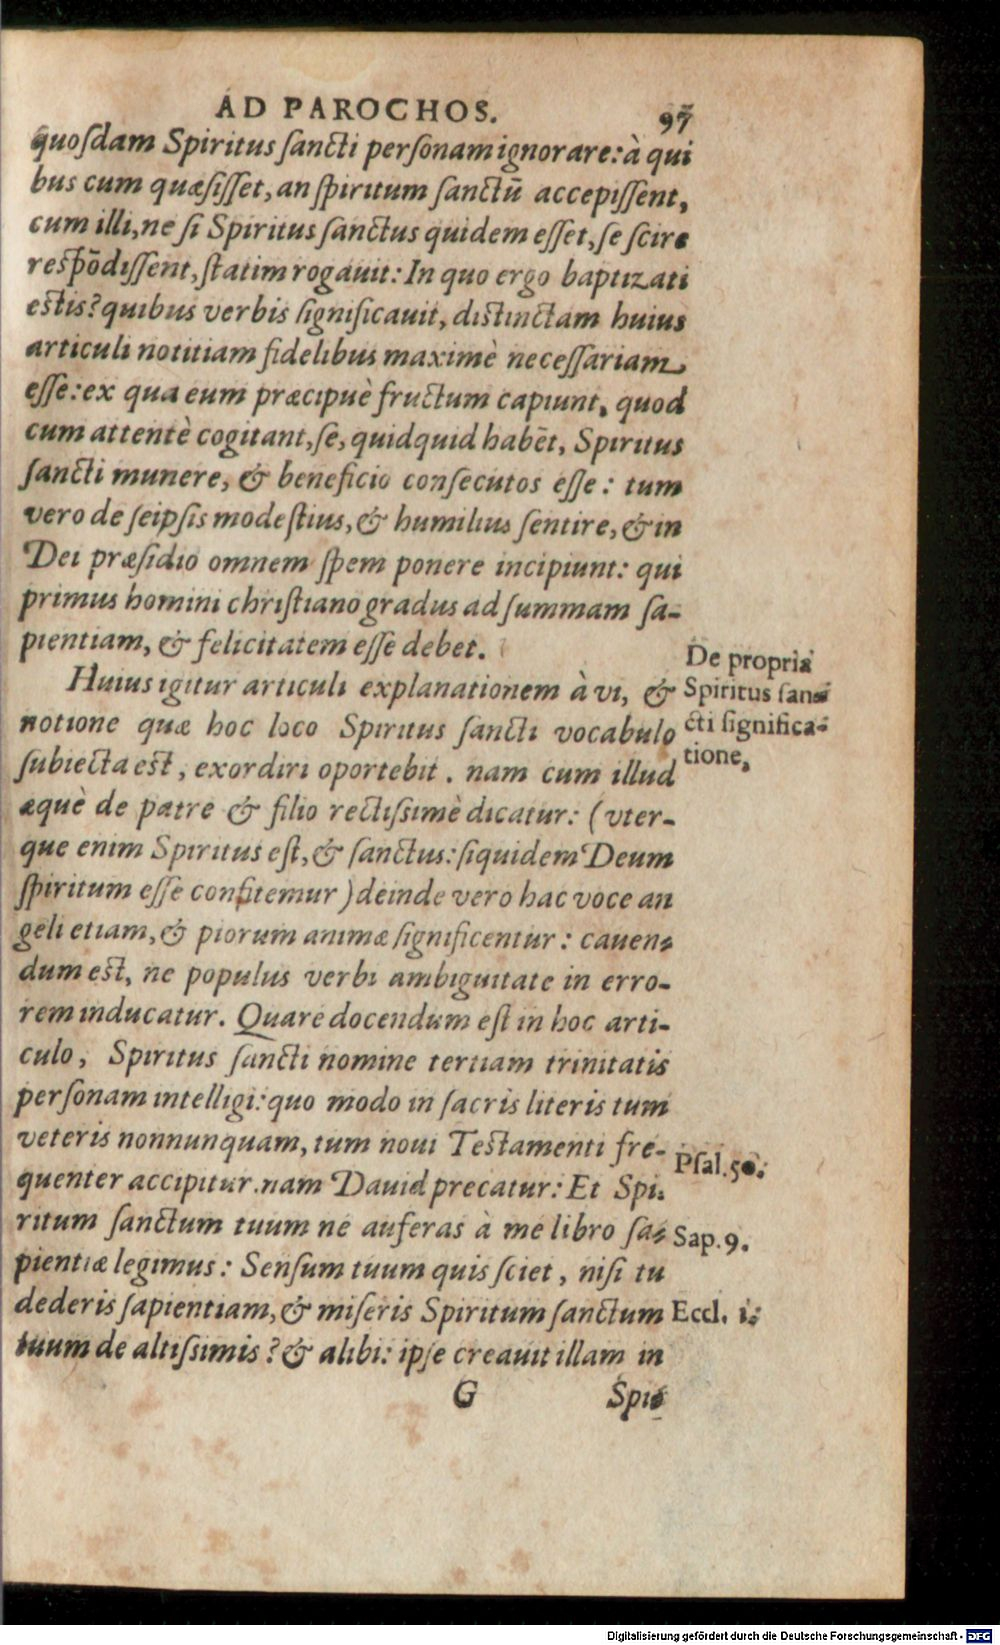 AD PAROCHOS. 97
quoſdam Spiritus ſancti perſonam ignorare: à qui
bus cum quæſiſſet, an ſpiritum ſanctū accepiſſent,
cum illi, ne ſi Spiritus ſanctus quidem eſſet, ſe ſcire
reſpōdiſſent, ſtatim rogauit: In quo ergo baptizati
eſtis? quibus verbis ſignificauit, diſtinctam huius
articuli notitiam fidelibus maximè neceſſariam
eſſe: ex qua eum præcipuè fructum capiunt, quod
cum attentè cogitant, ſe, quidquid habēt, Spiritus
ſancti munere, & beneficio conſecutos eſſe: tum
vero de ſeipſis modeſtius, & humilius ſentire, & in
Dei præſidio omnem ſpem ponere incipiunt: qui
primus homini chriſtiano gradus ad ſummam ſa-
pientiam, & felicitatem eſſe debet.
Huius igitur articuli explanationem à vi, &
notione quæ hoc loco Spiritus ſancti vocabulo
ſubiecta eſt, exordiri oportebit. nam cum illud
æquè de patre & filio rectiſsimè dicatur: (vter-
que enim Spiritus eſt, & ſanctus: ſiquidem Deum
ſpiritum eſſe confitemur) deinde vero hac voce an
geli etiam, & piorum animæ ſignificentur: cauen-
dum eſt, ne populus verbi ambiguitate in erro-
rem inducatur. Quare docendum eſt in hoc arti-
culo, Spiritus ſancti nomine tertiam trinitatis
perſonam intelligi: quo modo in ſacris literis tum
veteris nonnunquam, tum noui Teſtamenti fre-
quenter accipitur. nam Dauid precatur: Et Spi-
ritum ſanctum tuum ne auferas à me libro ſa-
pientiæ legimus: Senſum tuum quis ſciet, niſi tu
dederis ſapientiam, & miſeris Spiritum ſanctum
tuum de altiſsimis? & alibi: ipſe creauit illam in
G Spi-
De propria
Spiritus ſan-
cti ſignifica-
tione,
Pſal. 50.
Sap. 9.
Eccl. 1.
Digitalisierung gefördert durch die Deutsche Forschungsgemeinschaft - DFG